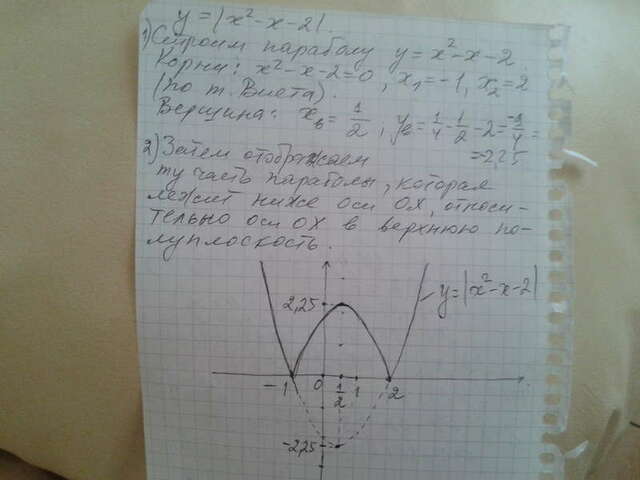 y = |x² - x - 2|.
1) Строим параболу y = x² - x - 2.
Корни: x² - x - 2 = 0, x₁ = -1, x₂ = 2
(по т. Виета).
Вершина: xв = 1/2, yв = 1/4 - 1/2 - 2 = =
= -2,25
2) Затем отображаем
ту часть параболы, которая
лежит ниже оси OX, относи-
тельно оси OX в верхнюю по-
луплоскость.
y = |x² - x - 2|
2,25
-1 0 1/2 1 2
-2,25